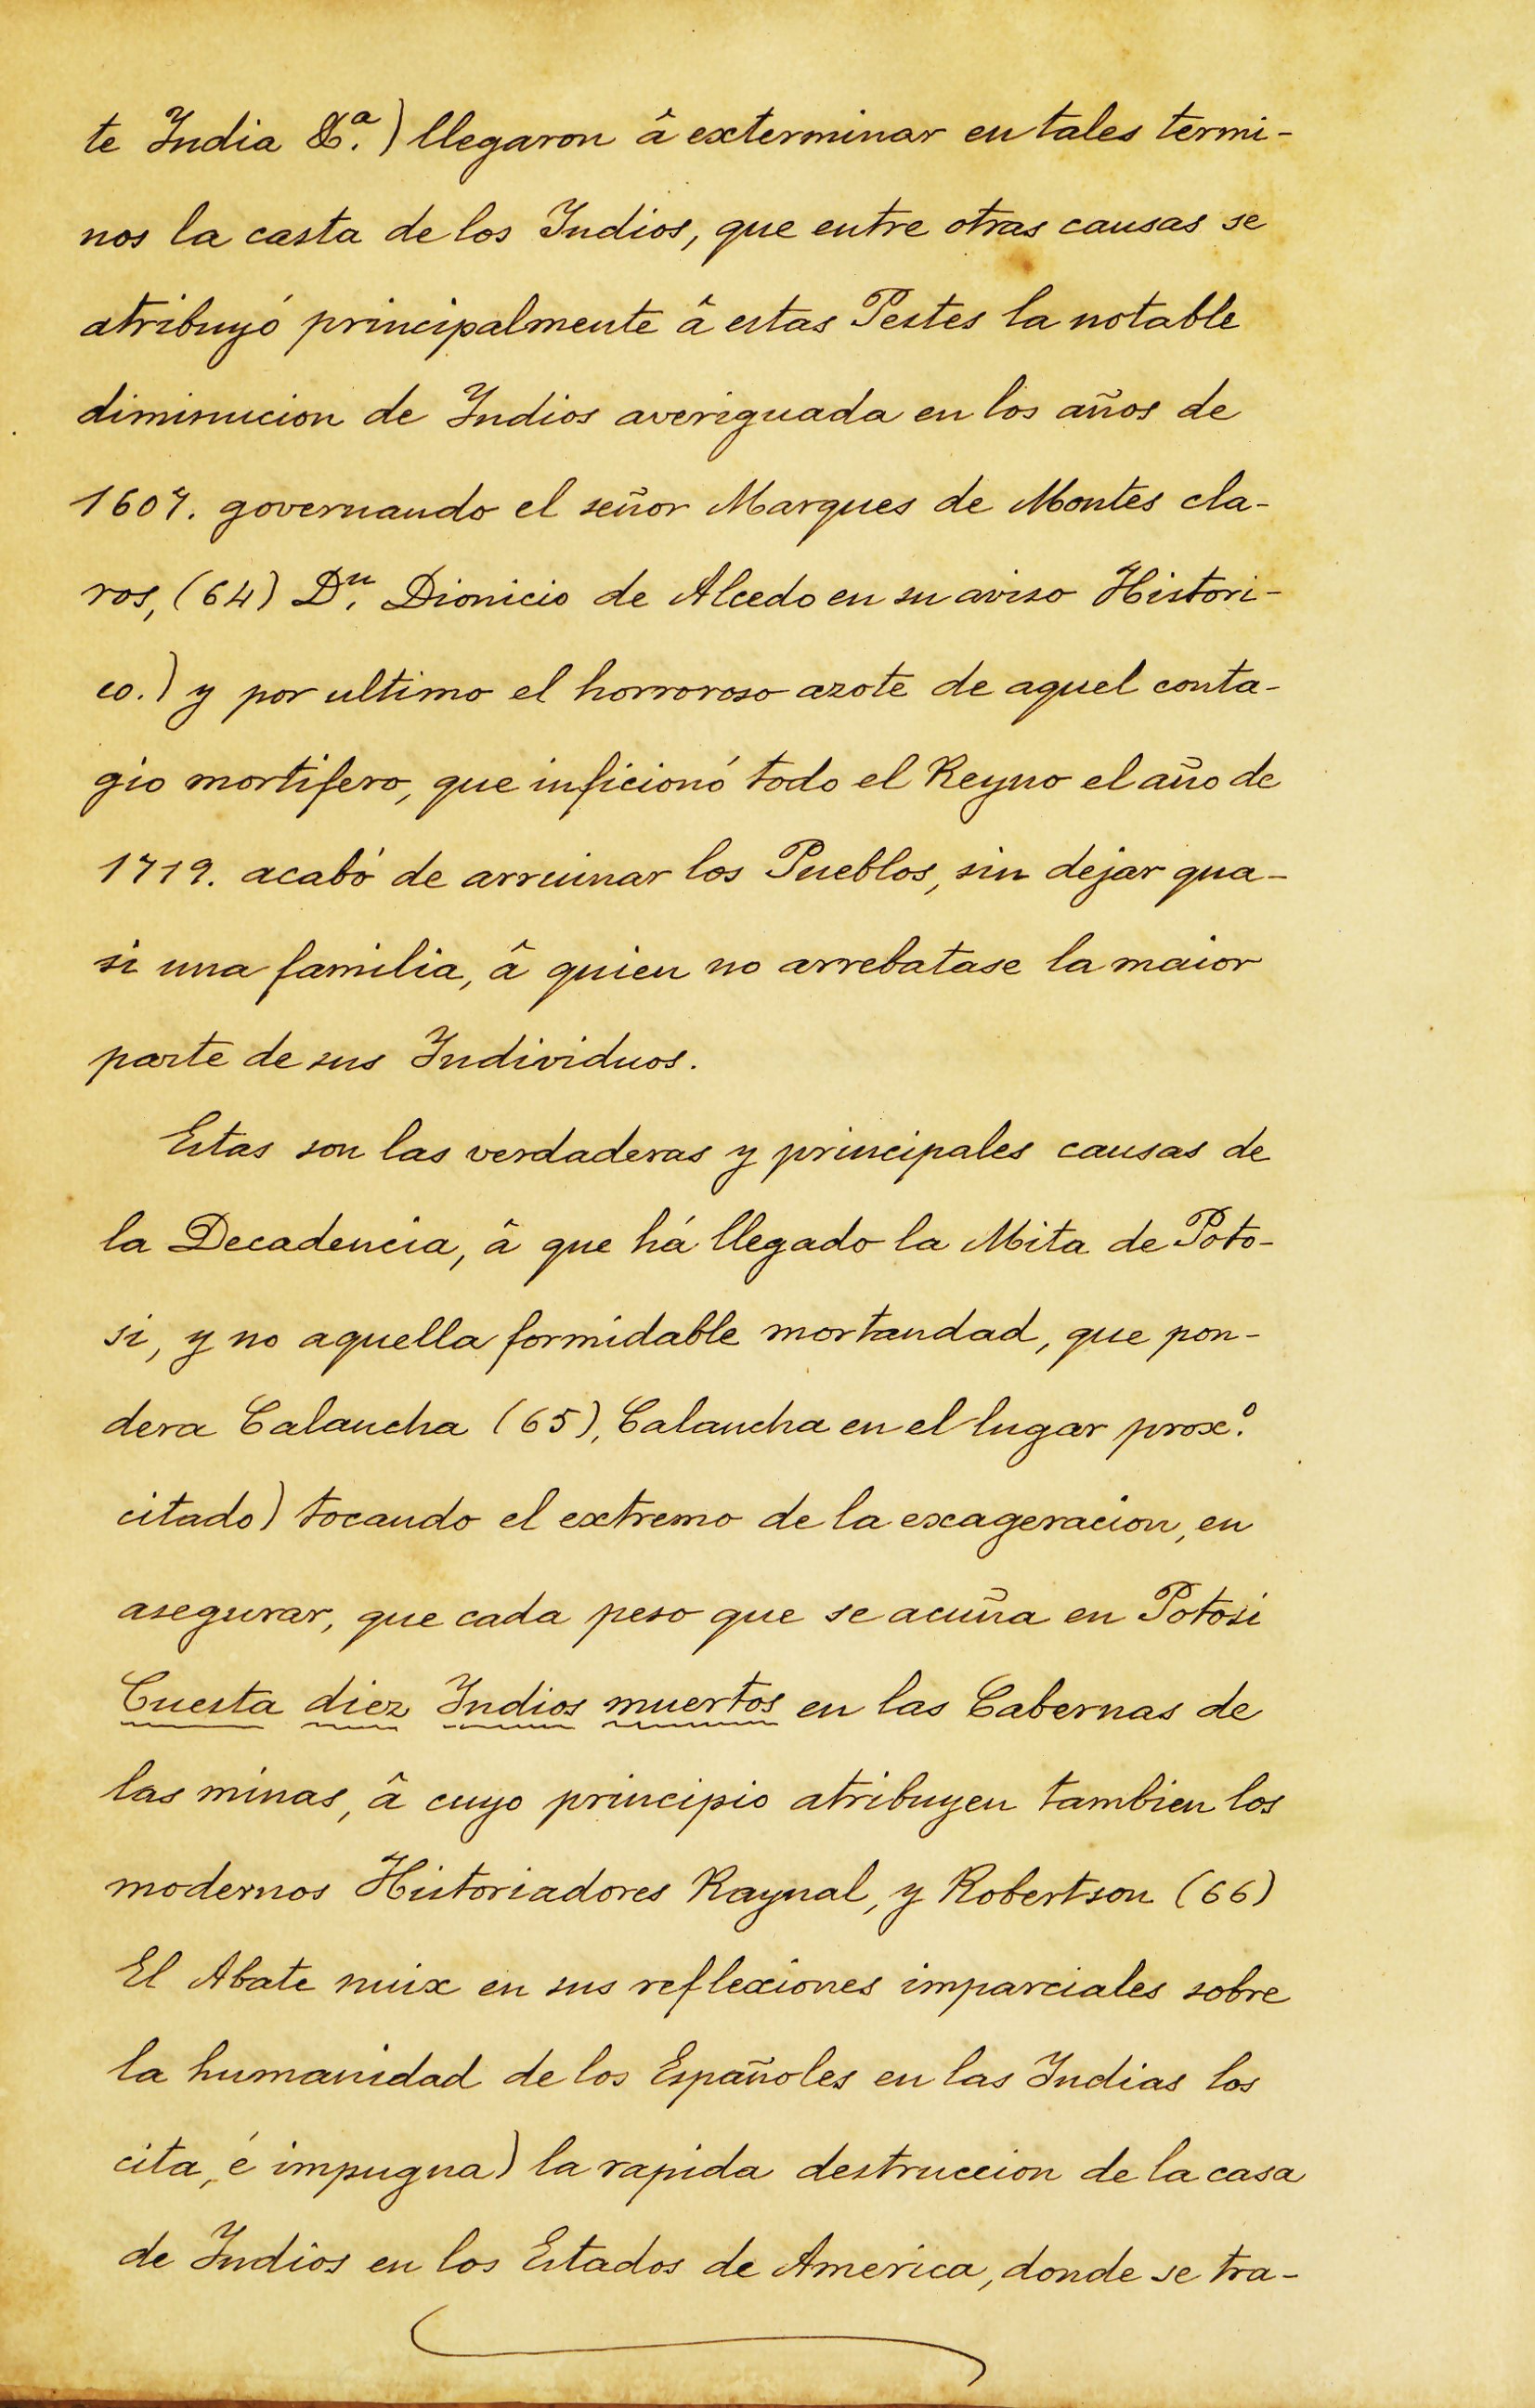 te India &.ª) llegaron â exterminar en tales termi-
nos la casta de los Indios, que entre otras causas se
atribuyó principalmente â estas Pestes la notable
diminucion de Indios averiguada en los años de
1607. governando el señor Marques de Montes cla-
ros, (64) D.n Dionicio de Alcedo en su aviso Histori-
co.) y por ultimo el horroroso azote de aquel conta-
gio mortifero, que inficionó todo el Reyno el año de
1719. acabó de arruinar los Pueblos, sin dejar qua-
si una familia, â quien no arrebatase la maior
parte de sus Individuos.
Estas son las verdaderas y principales causas de
la Decadencia, â que há llegado la Mita de Poto-
si, y no aquella formidable mortandad, que pon-
dera Calancha (65), Calancha en el lugar prox.º
citado) tocando el extremo de la exageracion, en
asegurar, que cada peso que se acuña en Potosi
Cuesta diez Indios muertos en las Cabernas de
las minas, â cuyo principio atribuyen tambien los
modernos Historiadores Raynal, y Robertson (66)
El Abate nuix en sus reflexiones imparciales sobre
la humanidad de los Españoles en las Indias los
cita, é impugna) la rapida destruccion de la casa
de Indios en los Estados de America, donde se tra-